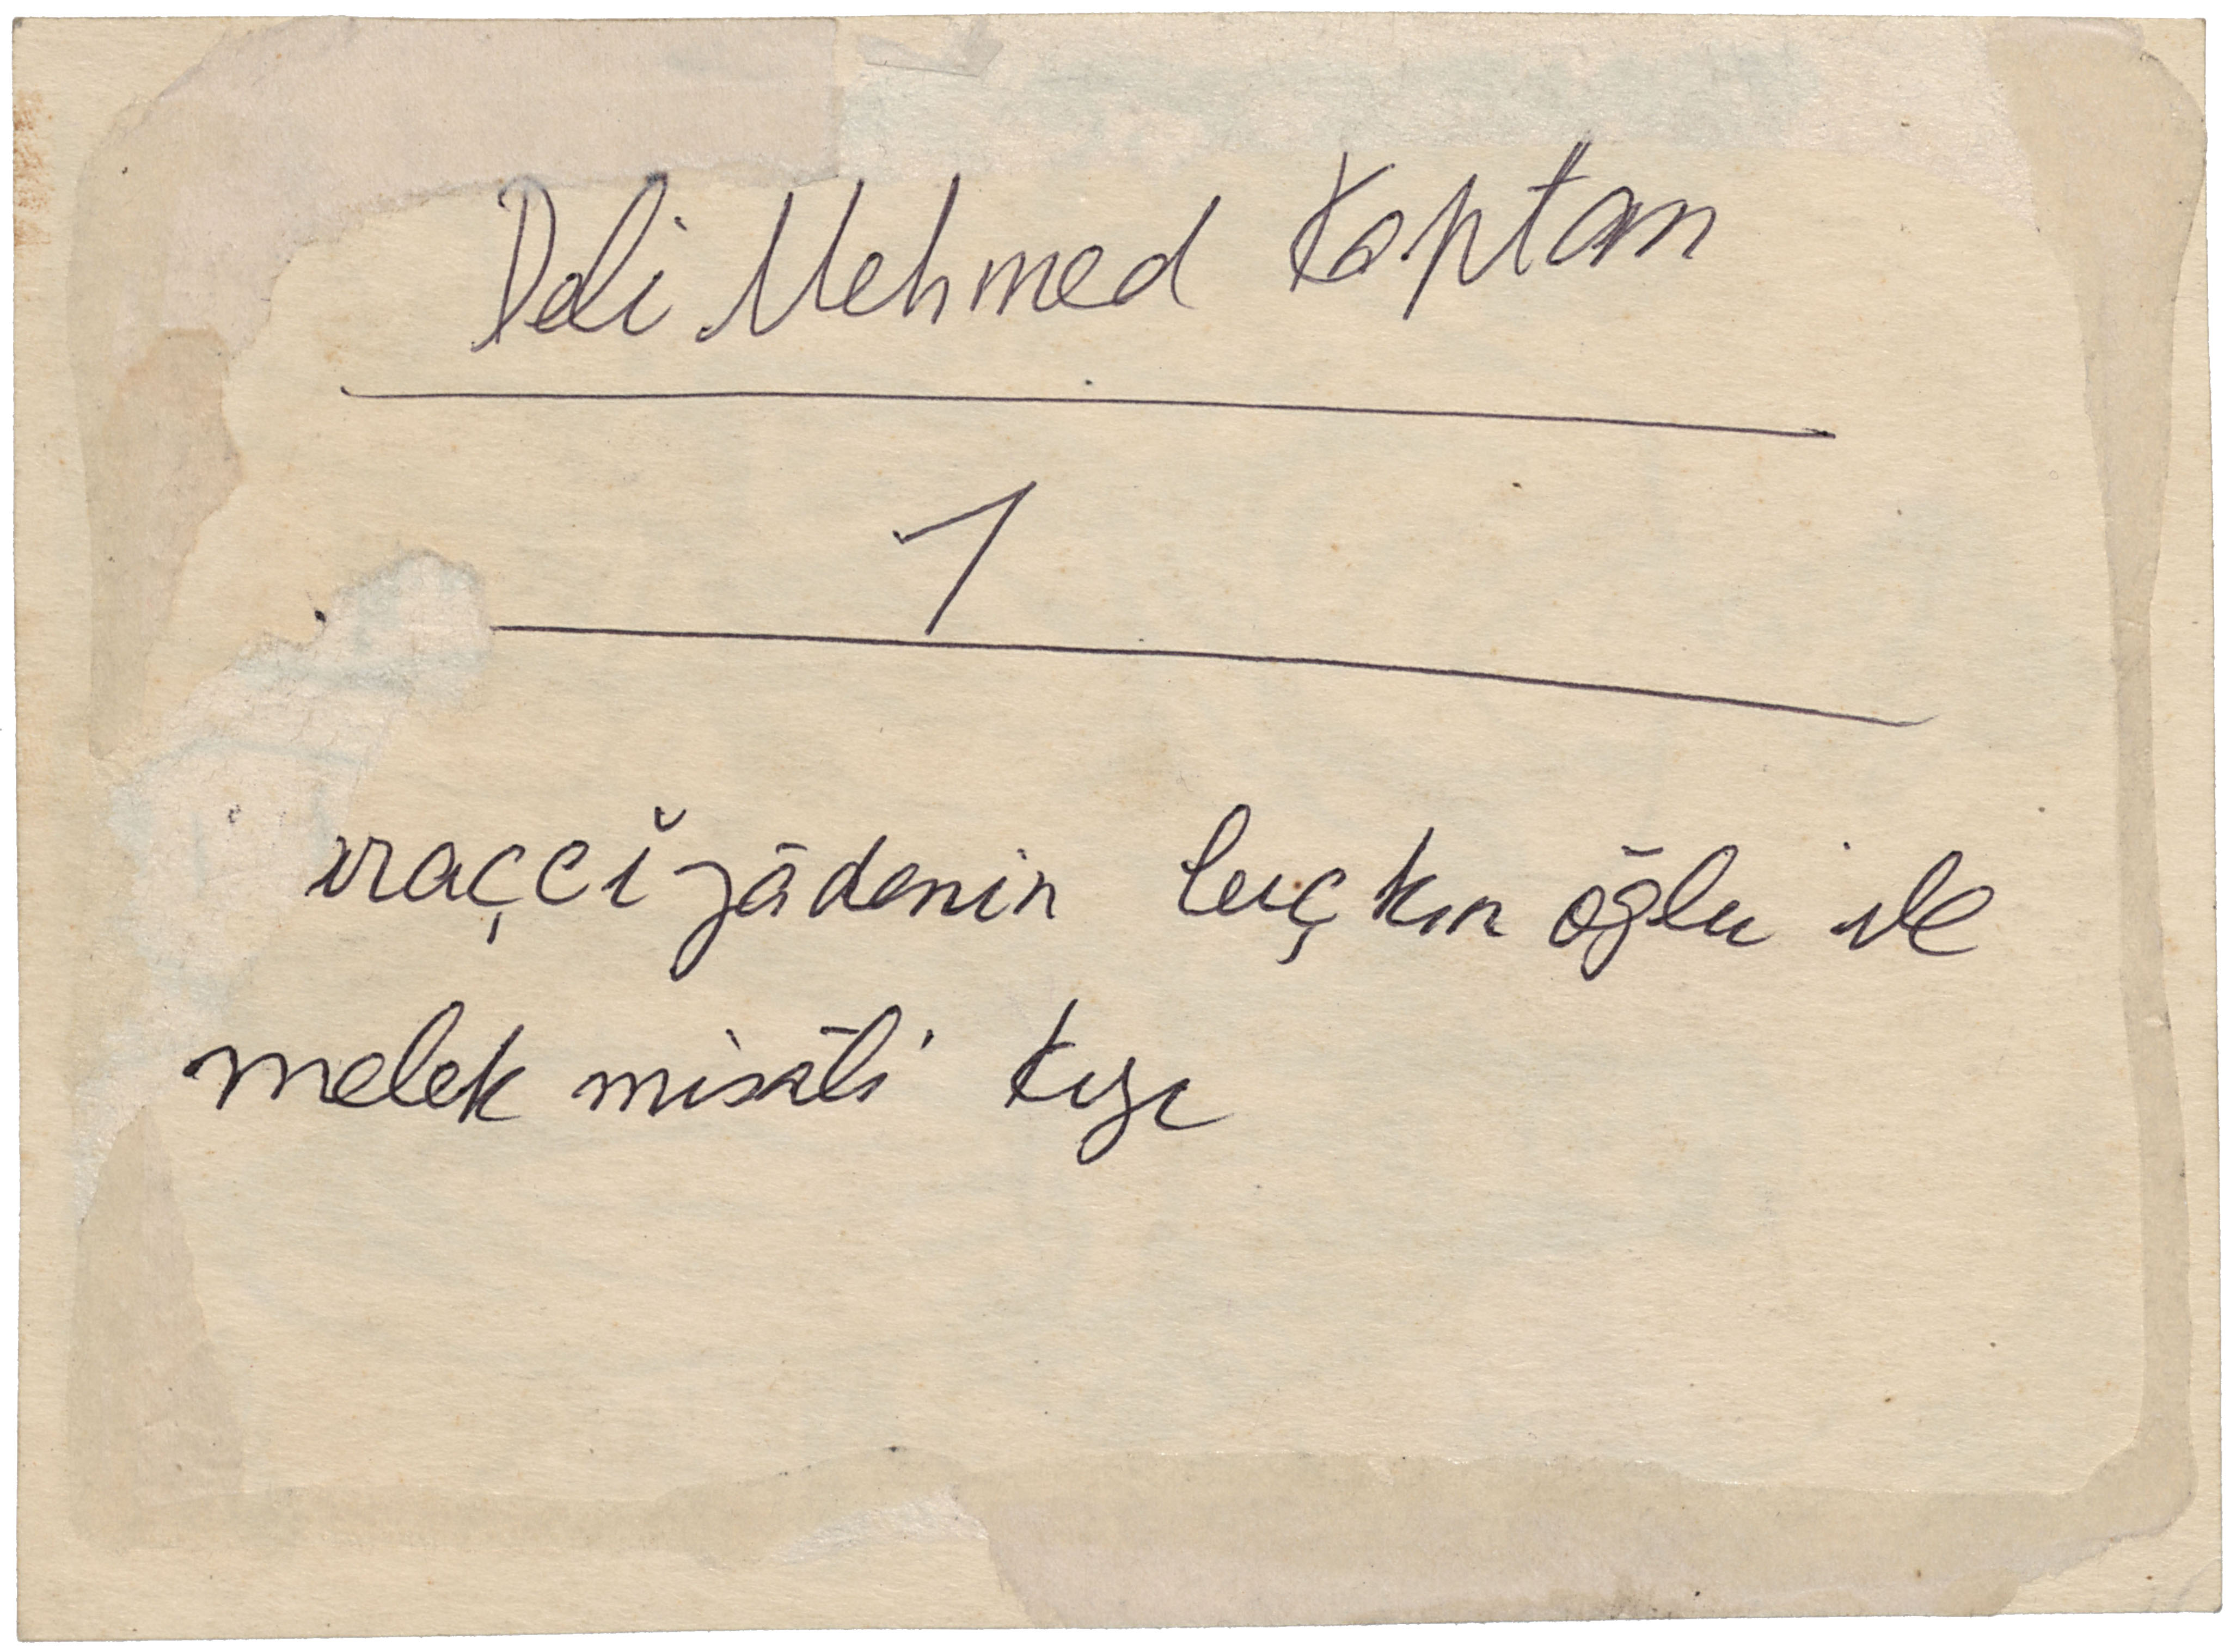 Deli Mehmed Kaptan
1
iraççizâdenin luçkın oğlu ile
melek misâli kızı